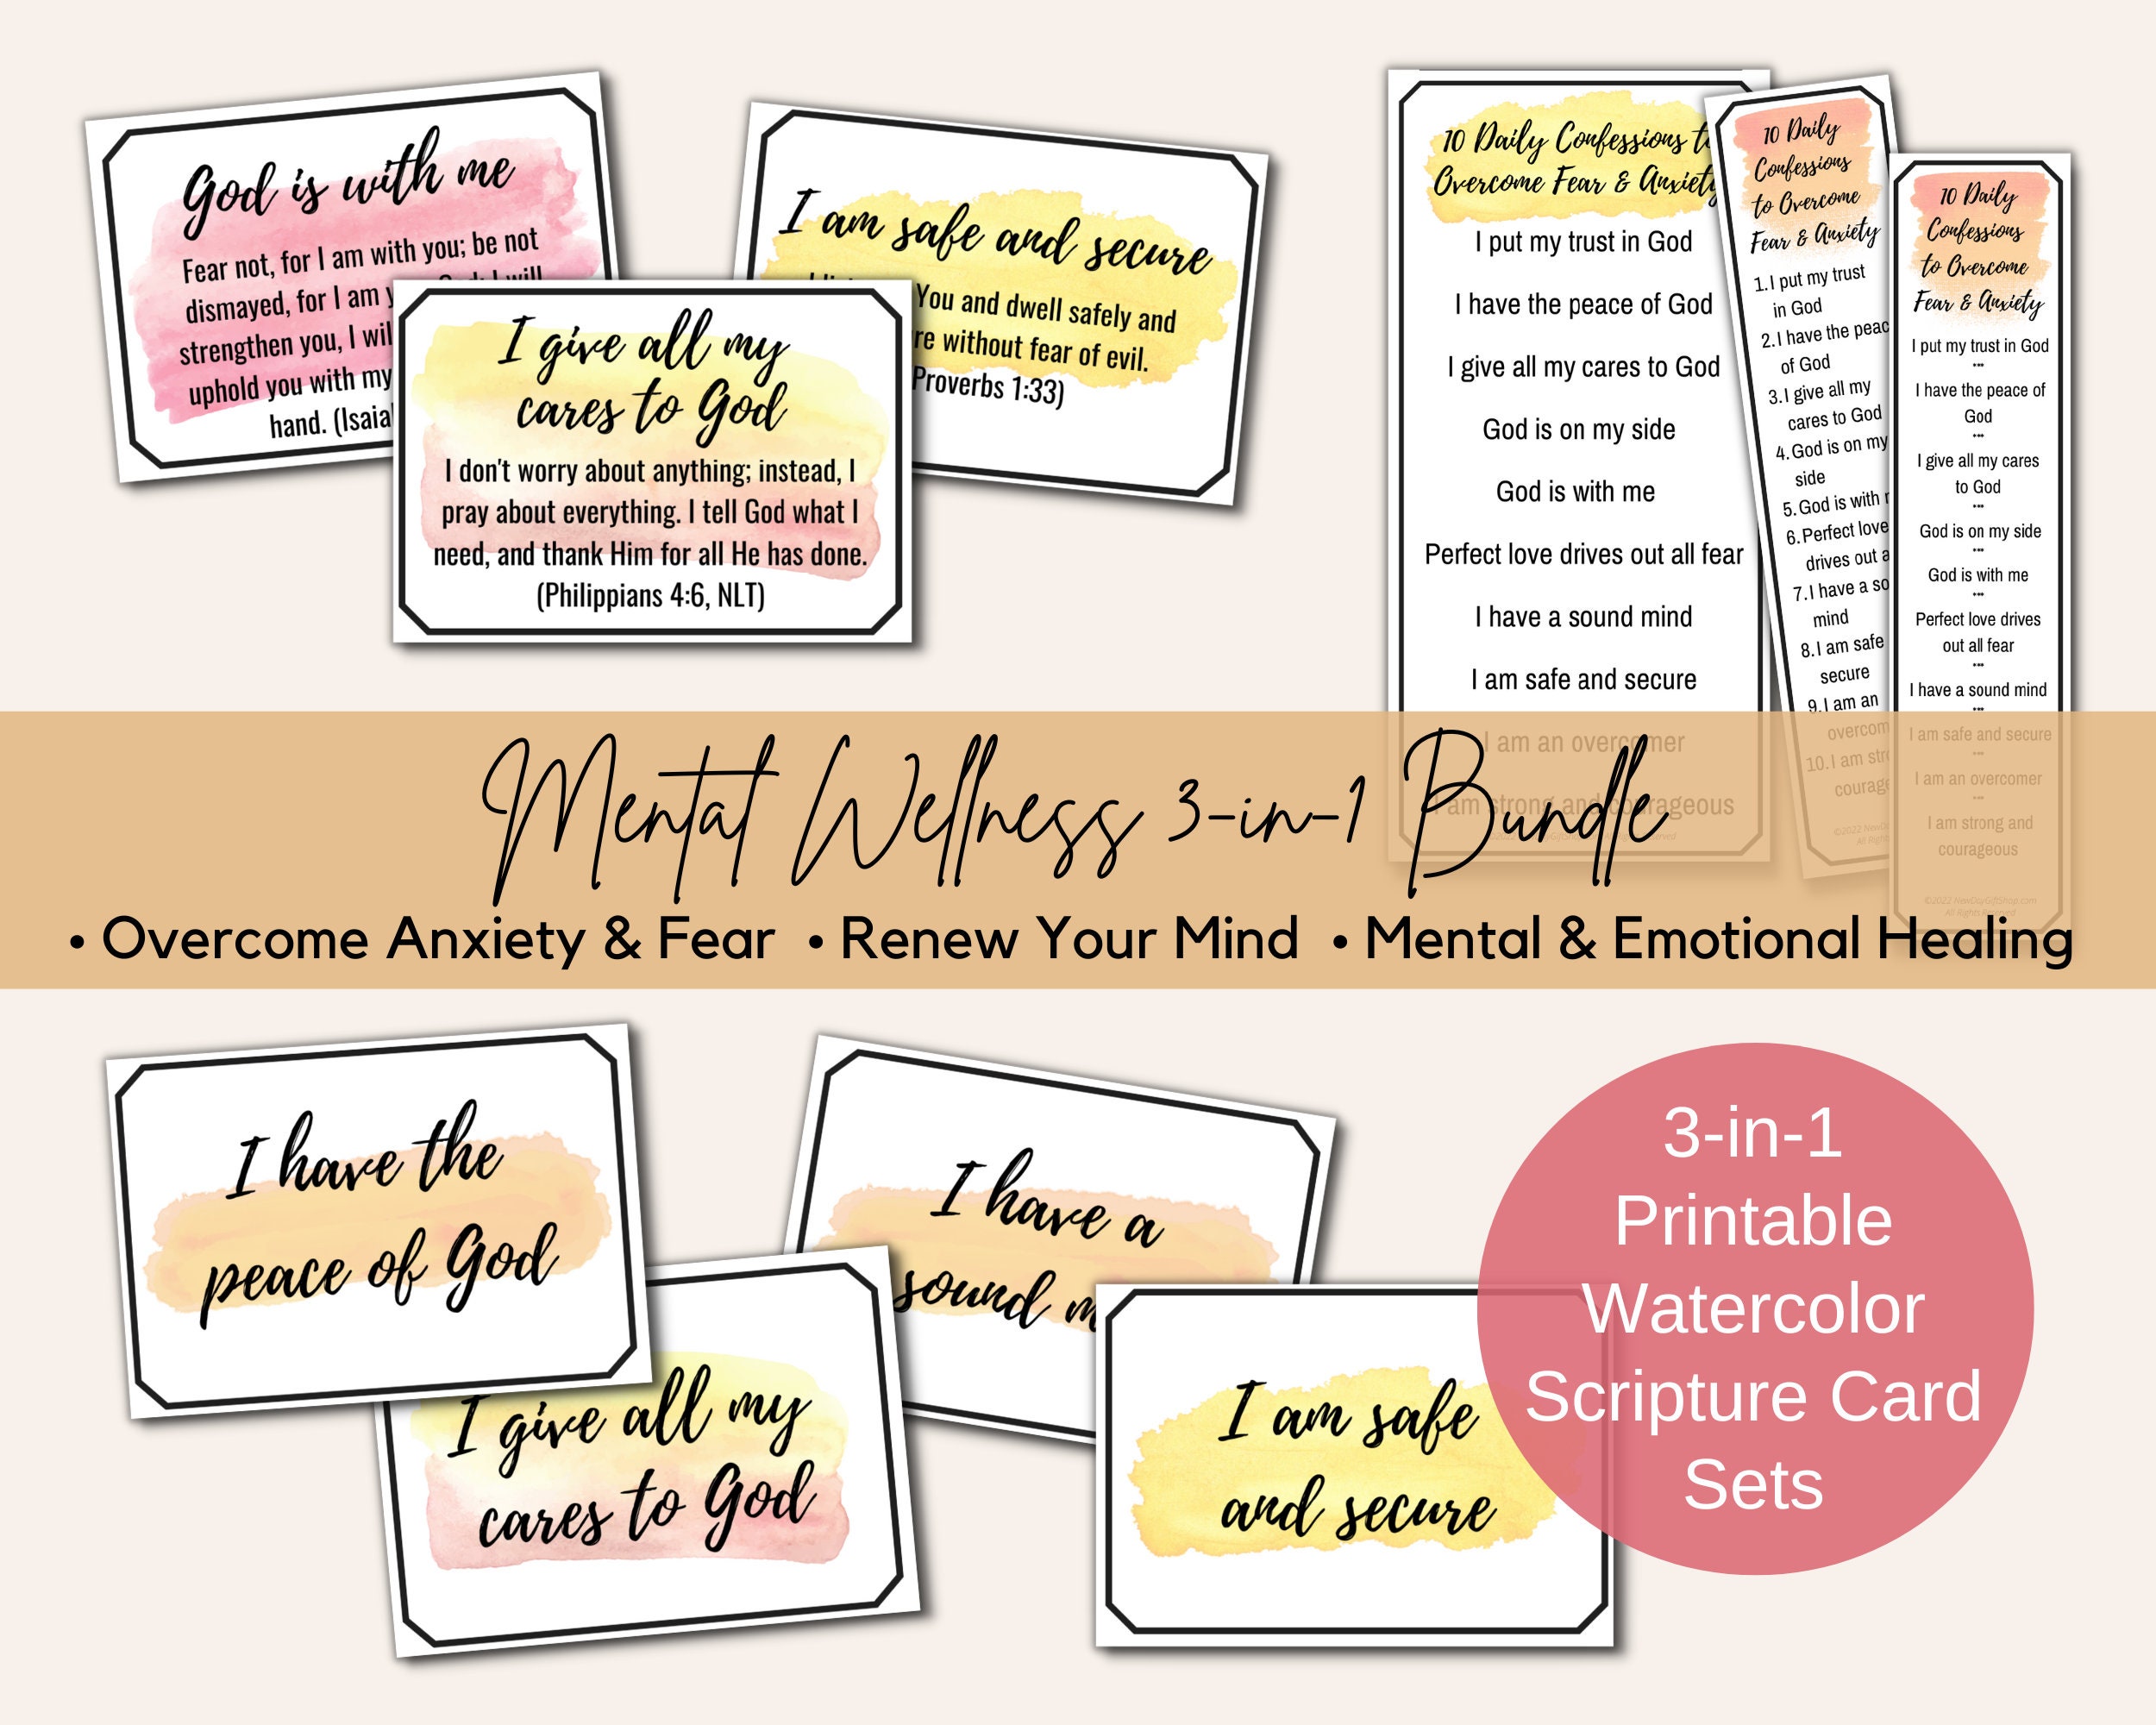 God is with me
Fear not, for I am with you; be not
dismayed, for I am
will
strengthen you, I
uphold you with my
hand.
I am safe and secure
You and dwell safely and
without fear of evil.
Proverbs 1:33)
I give all my
cares to God
I don't worry about anything; instead, I
pray about everything. I tell God what I
need, and thank Him for all He has done.
(Philippians 4:6, NLT)
10 Daily Confessions to
Overcome Fear & Anxiety
I put my trust in God
I have the peace of God
I give all my cares to God
God is on my side
God is with me
Perfect love drives out all fear
I have a sound mind
I am safe and secure
I am an overcomer
I am strong and courageous
10 Daily
Confessions
to Overcome
Fear & Anxiety
1. I put my trust
in God
2. I have the
of God
3. I give all my
cares to God
4. God is on my
side
5. God is with
6. Perfect love
drives out
7. I have a
mind
8. I am safe
secure
9. I am an
10. I am
10 Daily
Confessions
to Overcome
Fear & Anxiety
I put my trust in God
I have the peace of
God
I give all my cares
to God
God is on my side
God is with me
Perfect love drives
out all fear
I have a sound mind
I am safe and secure
I am an overcomer
I am strong and
courageous
©2022 NewDayGiftShop.com
All Rights Reserved
Mental Wellness 3-in-1 Bundle
• Overcome Anxiety & Fear • Renew Your Mind • Mental & Emotional Healing
I have the
peace of God
I have a
sound
I give all my
cares to God
I am safe
and secure
3-in-1
Printable
Watercolor
Scripture Card
Sets